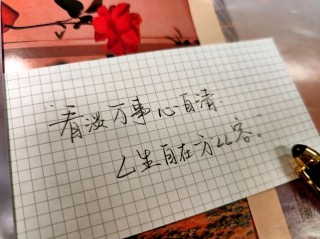 看淡万事心自清
人生自在方从容.